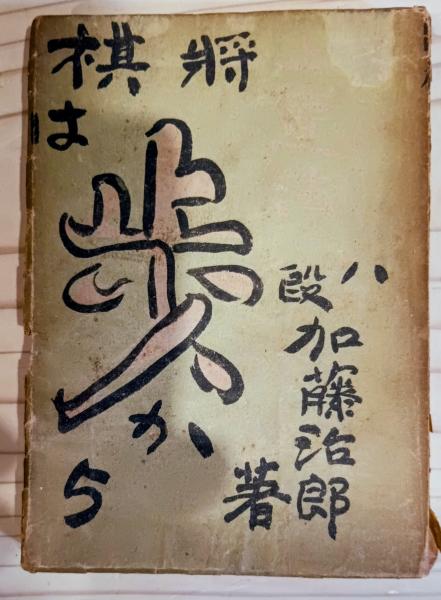 將棋
は
歩
から
八段
加藤治郎
著